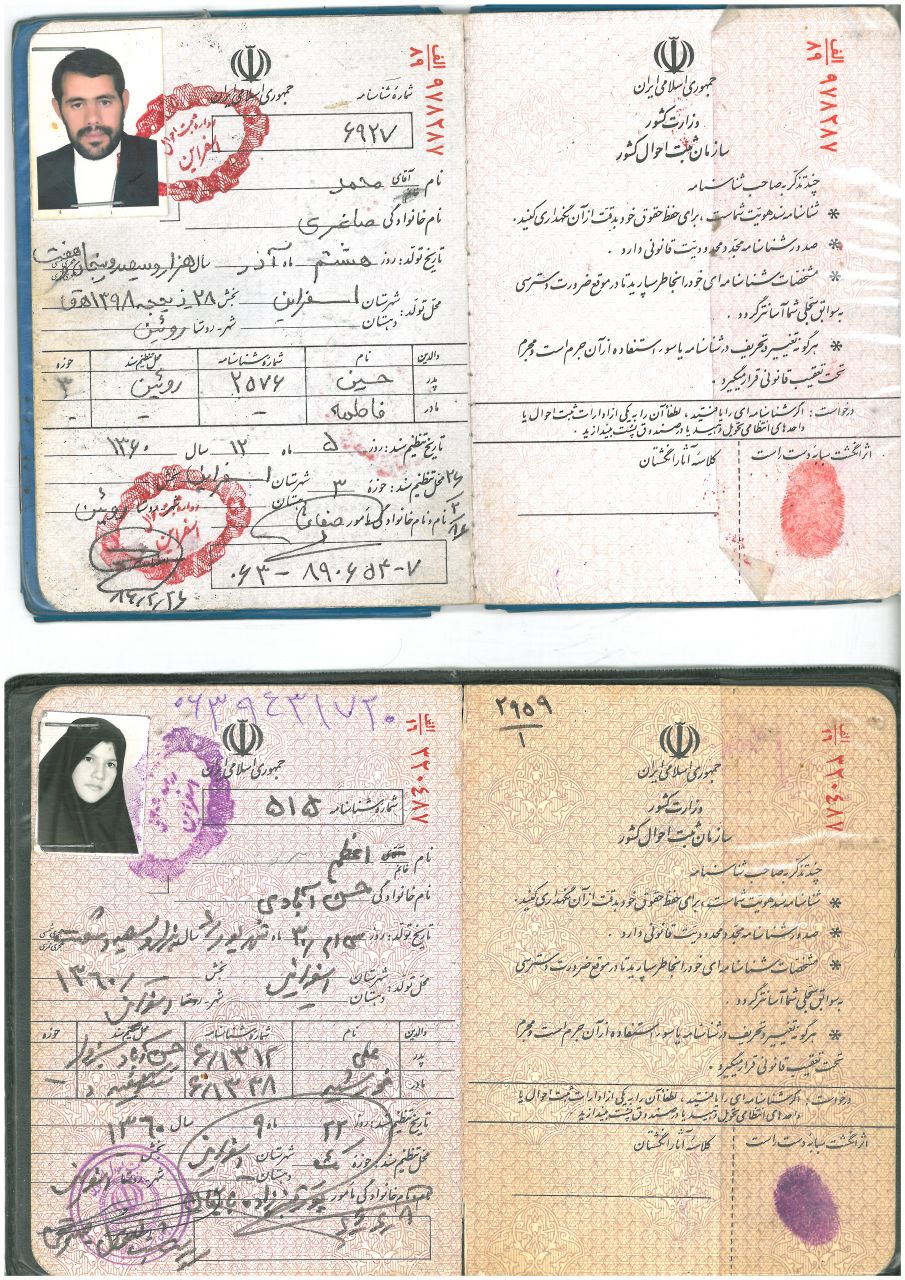 جمهوری اسلامی ایران
شماره شناسنامه
۶۹۲۷
الف
۸۹
۹۷۸۲۸۷
اداره ثبت احوال
اسفراین
نام آقای محمد
نام خانوادگی صاغری
تاریخ تولد: روز هشتم ماه آذر سال هزار و سیصد و پنجاه و هفت
محل تولد: شهرستان اسفراین بخش ۲۸ ذیحجه ۱۳۹۸ هـ ق
دهستان شهر - روستا روئین
والدین نام شماره شناسنامه محل تنظیم سند حوزه
پدر حسین ۲۵۷۶ روئین ۳
مادر فاطمه - - -
تاریخ تنظیم سند: روز ۵ ماه ۱۲ سال ۱۳۶۰
محل تنظیم سند: حوزه ۳ شهرستان اسفراین
دهستان روئین
نام و نام خانوادگی مأمور
۰۶۳-۸۹۰۶۵۴-۷
۸۴/۲/۲۶
الف
۸۹
۹۷۸۲۸۷
جمهوری اسلامی ایران
وزارت کشور
سازمان ثبت احوال کشور
چند تذکر به صاحب شناسنامه
* شناسنامه سند هویت شماست، برای حفظ حقوق خود بدقت از آن نگهداری کنید.
* صدور شناسنامه مجدد محدودیت قانونی دارد.
* مشخصات شناسنامه ای خود را بخاطر بسپارید تا در موقع ضرورت دسترسی
به سوابق سجلی شما آسانتر گردد.
* هرگونه تغییر و تحریف در شناسنامه یا سوء استفاده از آن جرم است و مجرم
تحت تعقیب قانونی قرار میگیرد.
درخواست: اگر شناسنامه ای را یافتید، لطفاً آن را به یکی از ادارات ثبت احوال یا
واحدهای انتظامی تحویل دهید یا در صندوق پست بیندازید.
اثر انگشت سبابه دست راست
کلاسه آثار انگشتان
۰۶۳۹۴۳۱۷۲۰
جمهوری اسلامی ایران
شماره شناسنامه
۵۱۵
الف
۱۹
۳۲۰۴۸۷
نام خانم اعظم
نام خانوادگی حسن آبادی
تاریخ تولد: روز سی ام ماه شهریور سال هزار و سیصد و شصت
محل تولد: شهرستان اسفراین بخش
دهستان شهر - روستا اسفراین
والدین نام شماره شناسنامه محل تنظیم سند حوزه
پدر علی
مادر
تاریخ تنظیم سند: روز ۲۲ ماه ۹ سال ۱۳۶۰
محل تنظیم سند: حوزه یک شهرستان اسفراین بخش
دهستان شهر - روستا اسفراین
نام و نام خانوادگی مأمور
۲۹۵۹
۱
الف
۱۹
۳۲۰۴۸۷
جمهوری اسلامی ایران
وزارت کشور
سازمان ثبت احوال کشور
چند تذکر به صاحب شناسنامه
* شناسنامه سند هویت شماست، برای حفظ حقوق خود بدقت از آن نگهداری کنید.
* صدور شناسنامه مجدد محدودیت قانونی دارد.
* مشخصات شناسنامه ای خود را بخاطر بسپارید تا در موقع ضرورت دسترسی
به سوابق سجلی شما آسانتر گردد.
* هرگونه تغییر و تحریف در شناسنامه یا سوء استفاده از آن جرم است و مجرم
تحت تعقیب قانونی قرار میگیرد.
درخواست: اگر شناسنامه ای را یافتید، لطفاً آن را به یکی از ادارات ثبت احوال یا
واحدهای انتظامی تحویل دهید یا در صندوق پست بیندازید.
اثر انگشت سبابه دست راست
کلاسه آثار انگشتان